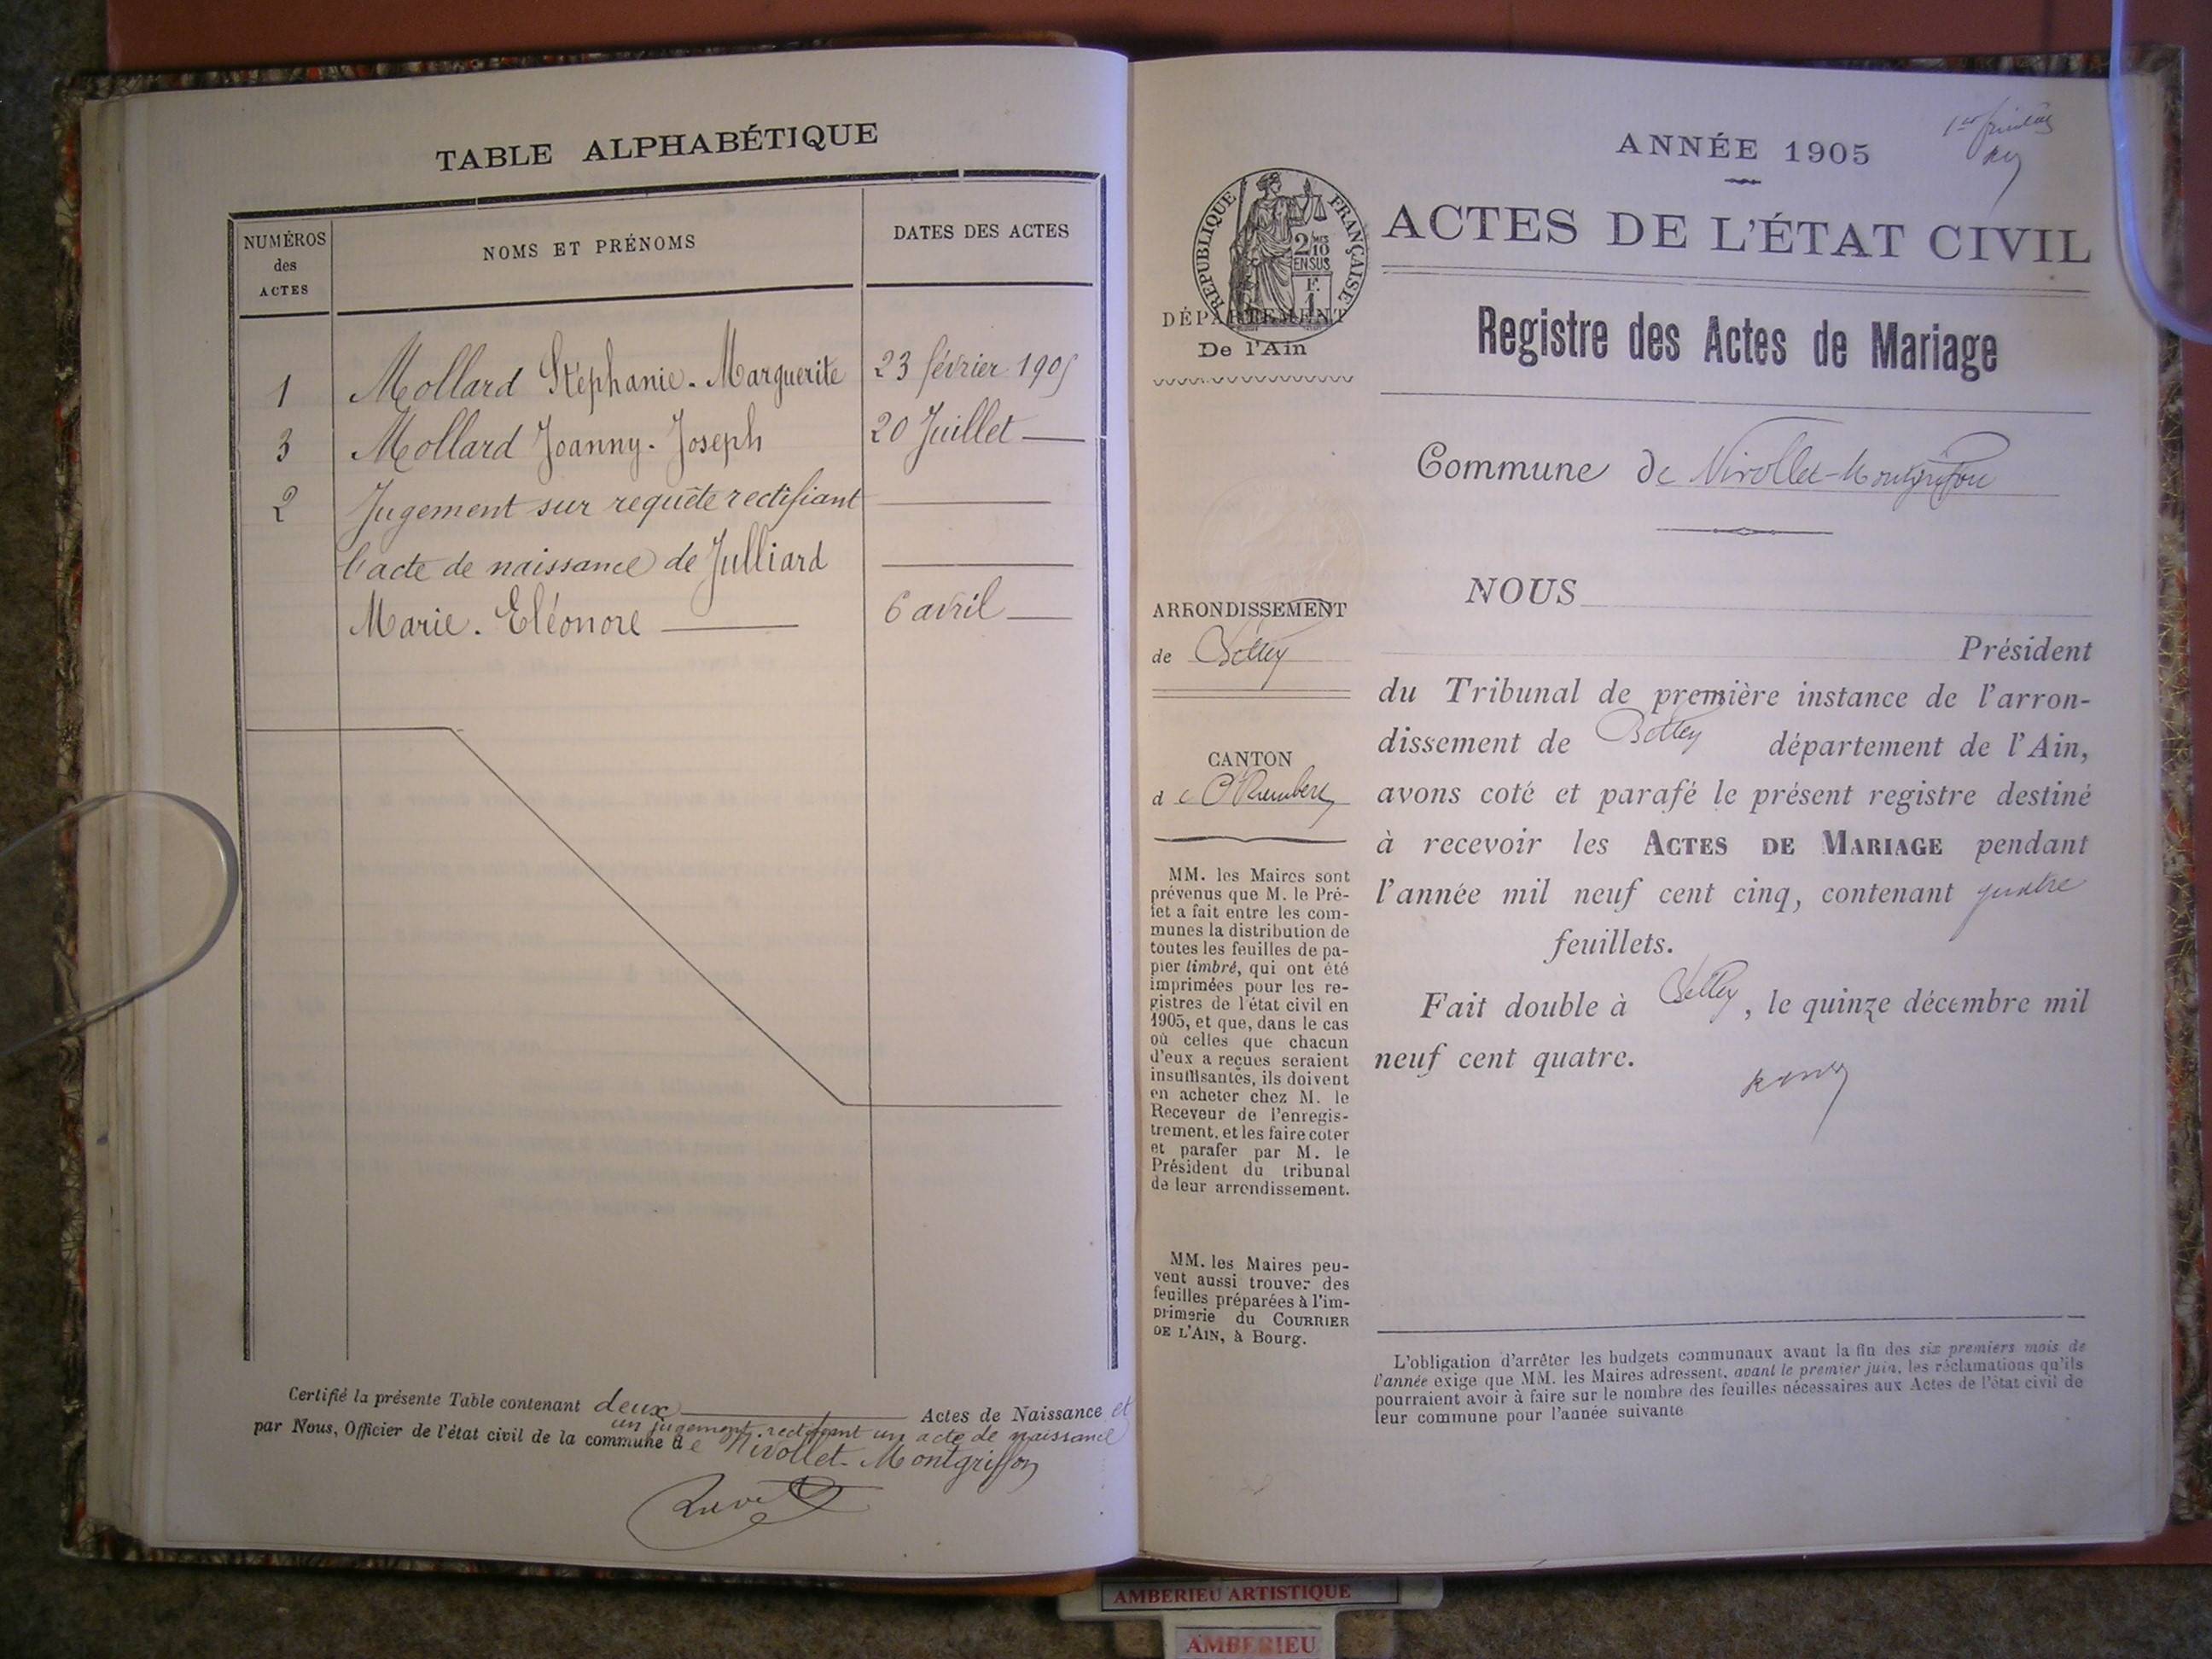 TABLE ALPHABÉTIQUE
NUMÉROS
des
ACTES
NOMS ET PRÉNOMS
DATES DES ACTES
1 Mollard Stéphanie-Marguerite 23 février 1905
3 Mollard Joanny-Joseph 20 Juillet —
2 Jugement sur requête rectifiant —
l'acte de naissance de Julliard —
Marie-Eléonore — 6 avril —
Certifié la présente Table contenant deux — Actes de Naissance et
un jugement rectifiant un acte de naissance
par Nous, Officier de l'état civil de la commune de Nivollet-Montgriffon
1er feuillet
ANNÉE 1905
ACTES DE L'ÉTAT CIVIL
RÉPUBLIQUE FRANÇAISE
2/10
EN SUS
F.
1
DÉPARTEMENT
De l'Ain
Registre des Actes de Mariage
Commune de Nivollet-Montgriffon
NOUS
ARRONDISSEMENT
de Belley
Président
du Tribunal de première instance de l'arron-
dissement de Belley département de l'Ain,
avons coté et parafé le présent registre destiné
à recevoir les ACTES DE MARIAGE pendant
l'année mil neuf cent cinq, contenant quatre
feuillets.
Fait double à Belley, le quinze décembre mil
neuf cent quatre.
CANTON
de St Rambert
MM. les Maires sont
prévenus que M. le Pré-
fet a fait entre les com-
munes la distribution de
toutes les feuilles de pa-
pier timbré, qui ont été
imprimées pour les re-
gistres de l'état civil en
1905, et que, dans le cas
où celles que chacun
d'eux a reçues seraient
insuffisantes, ils doivent
en acheter chez M. le
Receveur de l'enregis-
trement, et les faire coter
et parafer par M. le
Président du tribunal
de leur arrondissement.
MM. les Maires peu-
vent aussi trouver des
feuilles préparées à l'im-
primerie du COURRIER
DE L'AIN, à Bourg.
L'obligation d'arrêter les budgets communaux avant la fin des six premiers mois de
l'année exige que MM. les Maires adressent, avant le premier juin, les réclamations qu'ils
pourraient avoir à faire sur le nombre des feuilles nécessaires aux Actes de l'état civil de
leur commune pour l'année suivante
AMBERIEU ARTISTIQUE
AMBERIEU